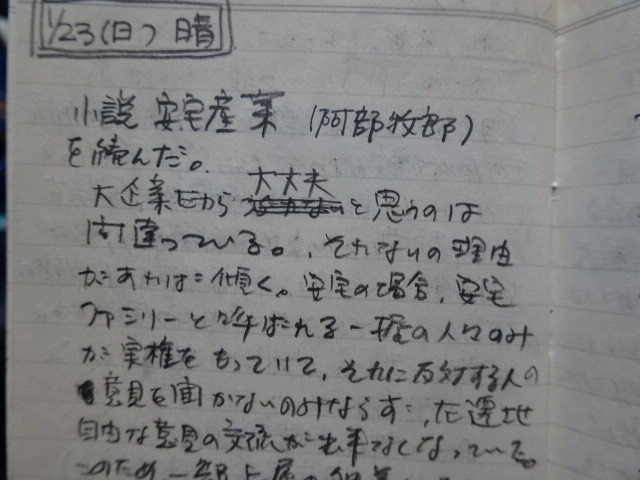 1/23(日) 晴
小説 安宅産業 (阿部牧郎)
を読んだ。
大企業だから大丈夫と思うのは
間違っている。それなりの理由
があれば傾く。安宅の場合、安宅
ファミリーと呼ばれる一握の人々のみ
が実権をもっていて、それに反対する人の
意見を聞かないのみならず、左遷
自由な意見の交流が出来なくなっている。
このため一部上層の